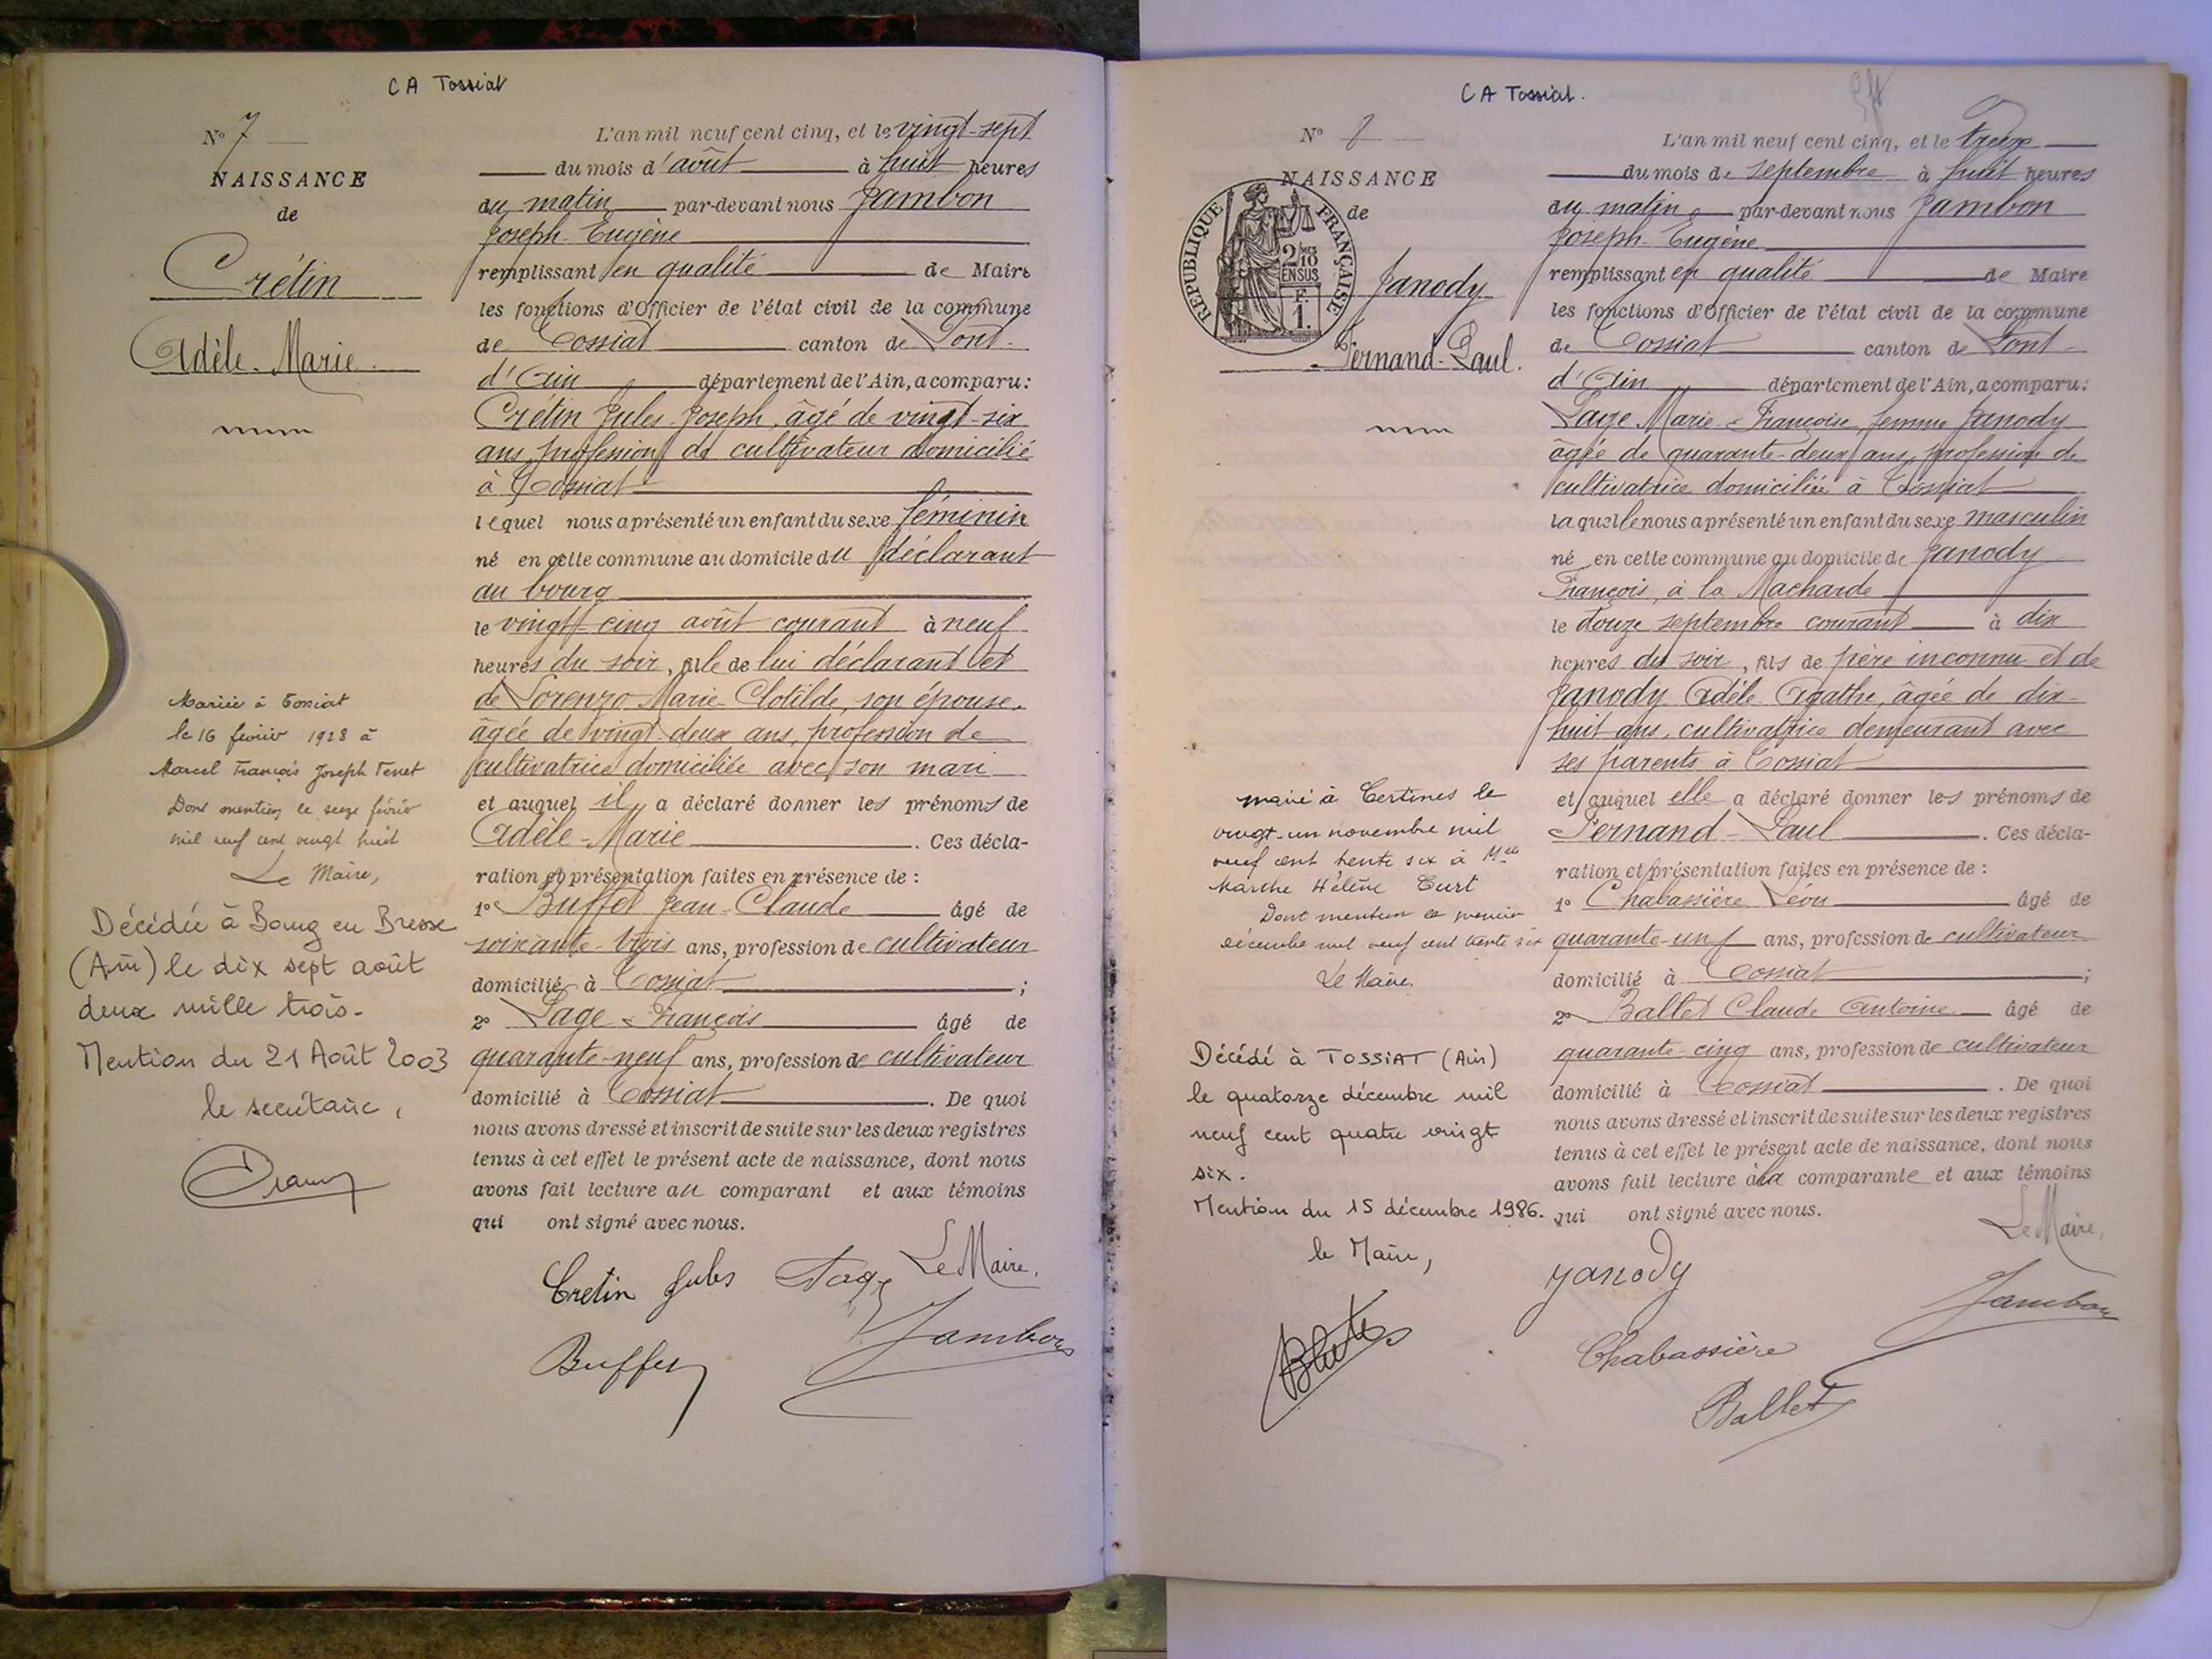 CA Tossiat
N° 7
NAISSANCE
de
Crétin
Adèle-Marie
Mariée à Tossiat
le 16 février 1928 à
Marcel François Joseph Tenet
Dont mention le seize février
mil neuf cent vingt huit
Le Maire,
Décédée à Bourg en Bresse
(Ain) le dix sept août
deux mille trois.
Mention du 21 Août 2003
le secrétaire,
L'an mil neuf cent cinq, et le vingt-sept
du mois d'août à huit heures
du matin par-devant nous Jambon
Joseph-Eugène
remplissant en qualité de Maire
les fonctions d'Officier de l'état civil de la commune
de Tossiat canton de Pont-
d'Ain département de l'Ain, a comparu:
Crétin Jules-Joseph, âgé de vingt-six
ans, profession de cultivateur domicilié
à Tossiat
lequel nous a présenté un enfant du sexe féminin
né en cette commune au domicile du déclarant
au bourg
le vingt-cinq août courant à neuf
heures du soir, fille de lui déclarant et
de Lorenzo Marie-Clotilde, son épouse,
âgée de vingt-deux ans, profession de
cultivatrice domiciliée avec son mari
et auquel il a déclaré donner les prénoms de
Adèle-Marie. Ces décla-
ration et présentation faites en présence de :
1° Buffet Jean-Claude âgé de
soixante-trois ans, profession de cultivateur
domicilié à Tossiat ;
2° Page François âgé de
quarante-neuf ans, profession de cultivateur
domicilié à Tossiat. De quoi
nous avons dressé et inscrit de suite sur les deux registres
tenus à cet effet le présent acte de naissance, dont nous
avons fait lecture au comparant et aux témoins
qui ont signé avec nous.
Le Maire,
Cretin Jules Page
Jambon
Buffet
CA Tossiat.
N° 8
NAISSANCE
de
REPUBLIQUE FRANÇAISE
2/10
EN SUS
F.
1.
Janody
Fernand-Paul.
marié à Certines le
vingt-un novembre mil
neuf cent trente six à Melle
Marthe Hélène Curt
Dont mention ce premier
décembre mil neuf cent trente six
Le Maire.
Décédé à TOSSIAT (Ain)
le quatorze décembre mil
neuf cent quatre vingt
six.
Mention du 15 décembre 1986.
le Maire,
L'an mil neuf cent cinq, et le treize
du mois de septembre à huit heures
du matin par-devant nous Jambon
Joseph-Eugène
remplissant en qualité de Maire
les fonctions d'Officier de l'état civil de la commune
de Tossiat canton de Pont-
d'Ain département de l'Ain, a comparu:
Page Marie-Françoise, femme Janody
âgée de quarante-deux ans, profession de
cultivatrice domiciliée à Tossiat
laquelle nous a présenté un enfant du sexe masculin
né en cette commune au domicile de Janody
François, à la Macharde
le douze septembre courant à dix
heures du soir, fils de père inconnu et de
Janody Adèle Agathe, âgée de dix-
huit ans, cultivatrice demeurant avec
ses parents à Tossiat
et auquel elle a déclaré donner les prénoms de
Fernand-Paul. Ces décla-
ration et présentation faites en présence de :
1° Chabassière Léon âgé de
quarante-un ans, profession de cultivateur
domicilié à Tossiat ;
2° Ballet Claude Antoine âgé de
quarante-cinq ans, profession de cultivateur
domicilié à Tossiat. De quoi
nous avons dressé et inscrit de suite sur les deux registres
tenus à cet effet le présent acte de naissance, dont nous
avons fait lecture à la comparante et aux témoins
qui ont signé avec nous.
Le Maire,
Janody
Jambon
Chabassière
Ballet